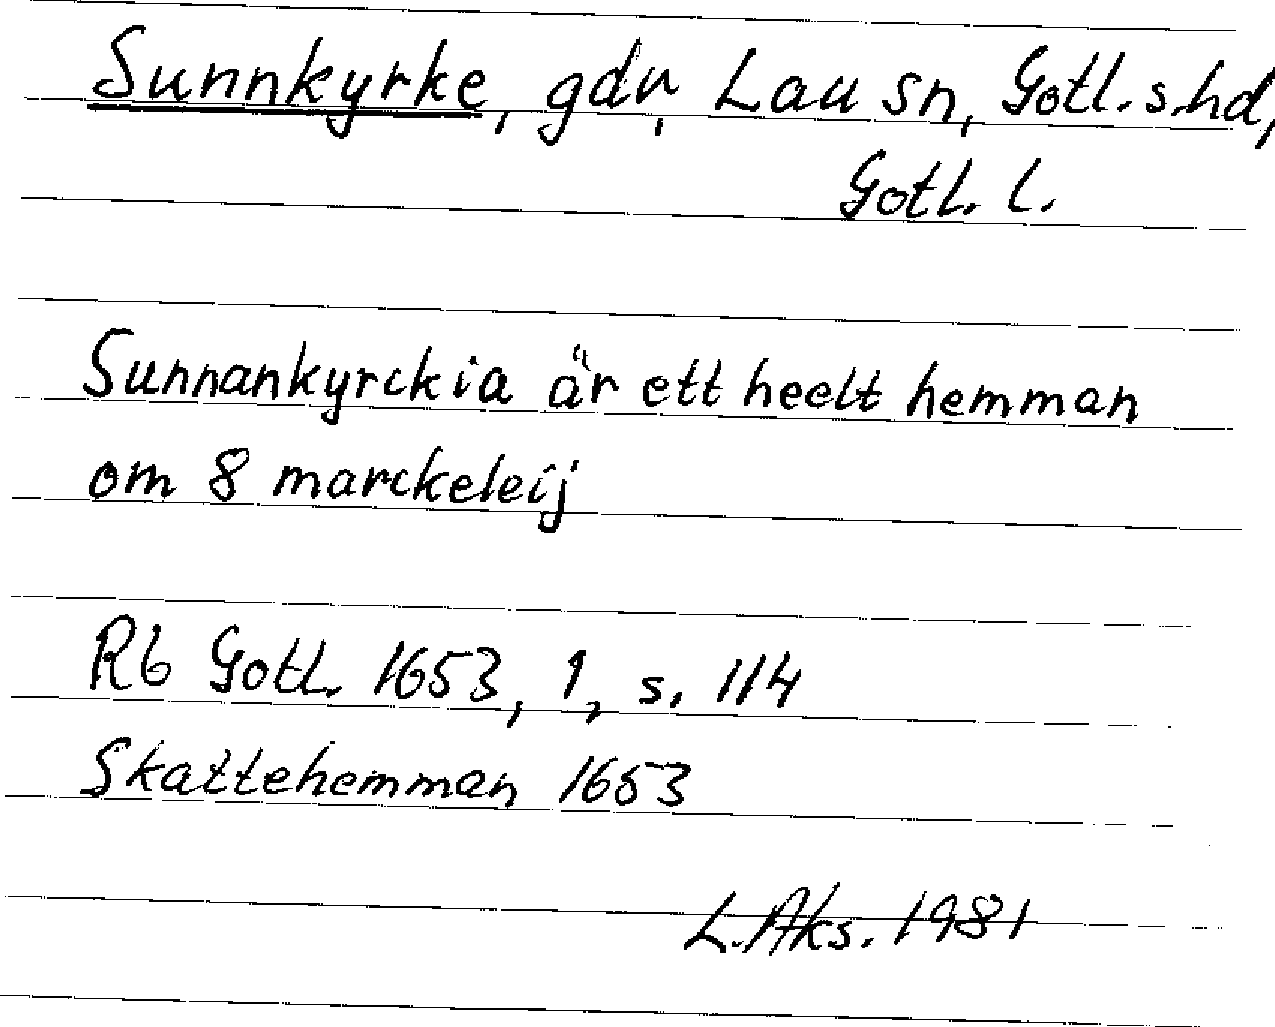 Sunnkyrke, gdr, Lau sn, Gotl. s. hd,
Gotl. l.
Sunnankyrckia är ett heelt hemman
om 8 marckeleij
Rb Gotl. 1653, 1, s. 114
Skattehemman 1653
L. Aks. 1981